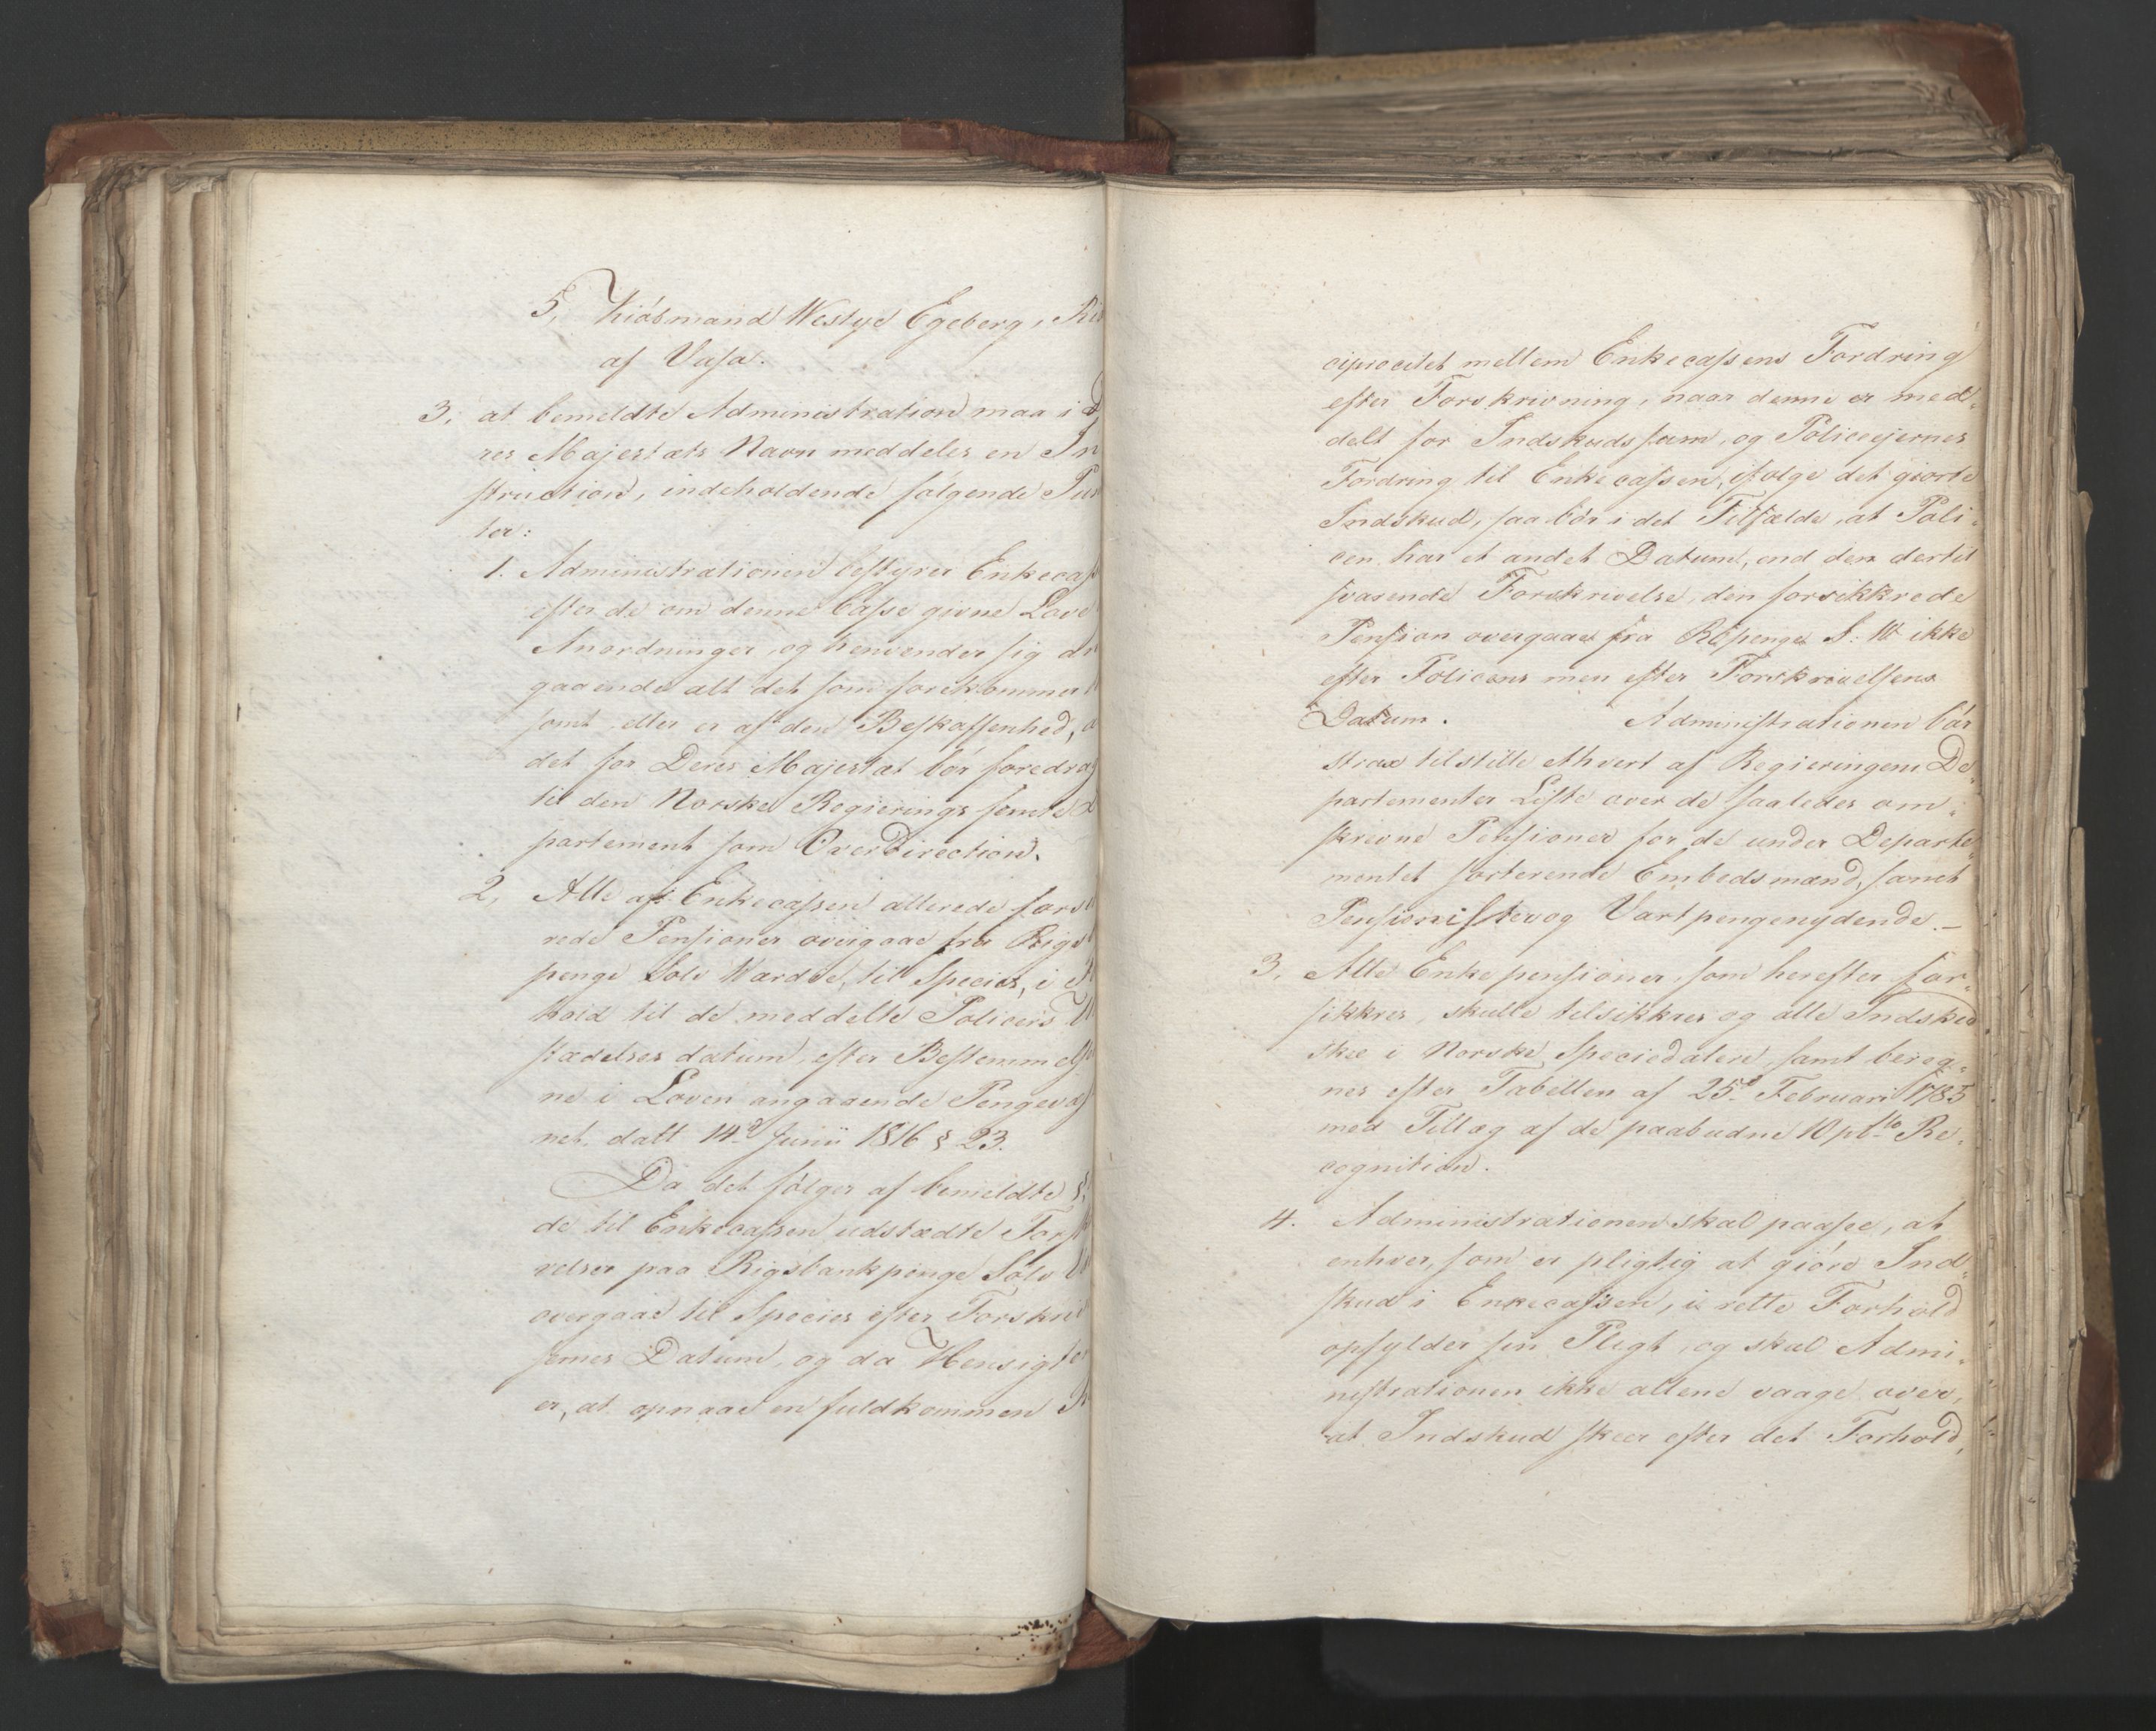 5, Kiøbmand Westye Egeberg, Rid
af Vasa.
3, at bemeldte Administration maa i D
res Majestæts Navn meddeles en In
struction, indeholdende følgende Pun
ter:
1. Administrationen bestyrer Enkecas
efter de om denne Casse givne Love
Anordninger, og henvender sig an
gaaende alt det som forekommer
samt eller er af den Beskaffenhed, a
det for Deres Majestæt bør foredrag
til den Norske Regierings femte D
partement som OverDirection.
2, Alle af Enkecassen allerede forsik
rede Pensioner overgaae fra Rigs
penge Sølv Værdie, til Species, i
hold til de meddelte Policers
stædelses datum, efter Bestemmelse
ne i Loven angaaende Pengevæs
net, datt 14de Junii 1816 § 23.
Da det følger af bemeldte §,
de til Enkecassen udstædte Forsk
velser paa Rigsbankpenge Sølv
overgaae til Species efter Forskriv
sernes Datum, og da Hensigten
er, at opnaae en fuldkommen R
ciprocitet mellem Enkecassens Fordring
efter Forskrivning, naar denne er med-
delt for Indskudssum, og Policeejernes
Fordring til Enkecassen, ifølge det giorte
Indskud, saa bør i det Tilfælde, at Poli-
cen har et andet Datum, end den dertil
svarende Forskrivelse, den forsikkrede
Pension overgaae fra RBpenge S: W ikke
efter Policens men efter Forskrivelsens
Datum. Administrationen bør
strax tilstille ethvert af Regieringens De-
partementer Liste over de saaledes om-
skrevne Pensioner for de under Departe-
mentet sorterende Embedsmænd, samt
Pensionister og Vartpengenydende.-
3, Alle Enkepensioner, som herefter for-
sikkres, skulle tilsikkres og alle Indskud
skee i Norske Speciedalere, samt bereg-
nes efter Tabellen af 25de Februarii 1785
med Tillæg af de paabudne 10 pCto Re-
cognition.
4. Administrationen skal paasee, at
enhver, som er pligtig at giøre Ind-
skud i Enkecassen, i rette Forhold
opfylder sin Pligt, og skal Admi-
nistrationen ikke allene vaage over,
at Indskud skeer efter det Forhold,